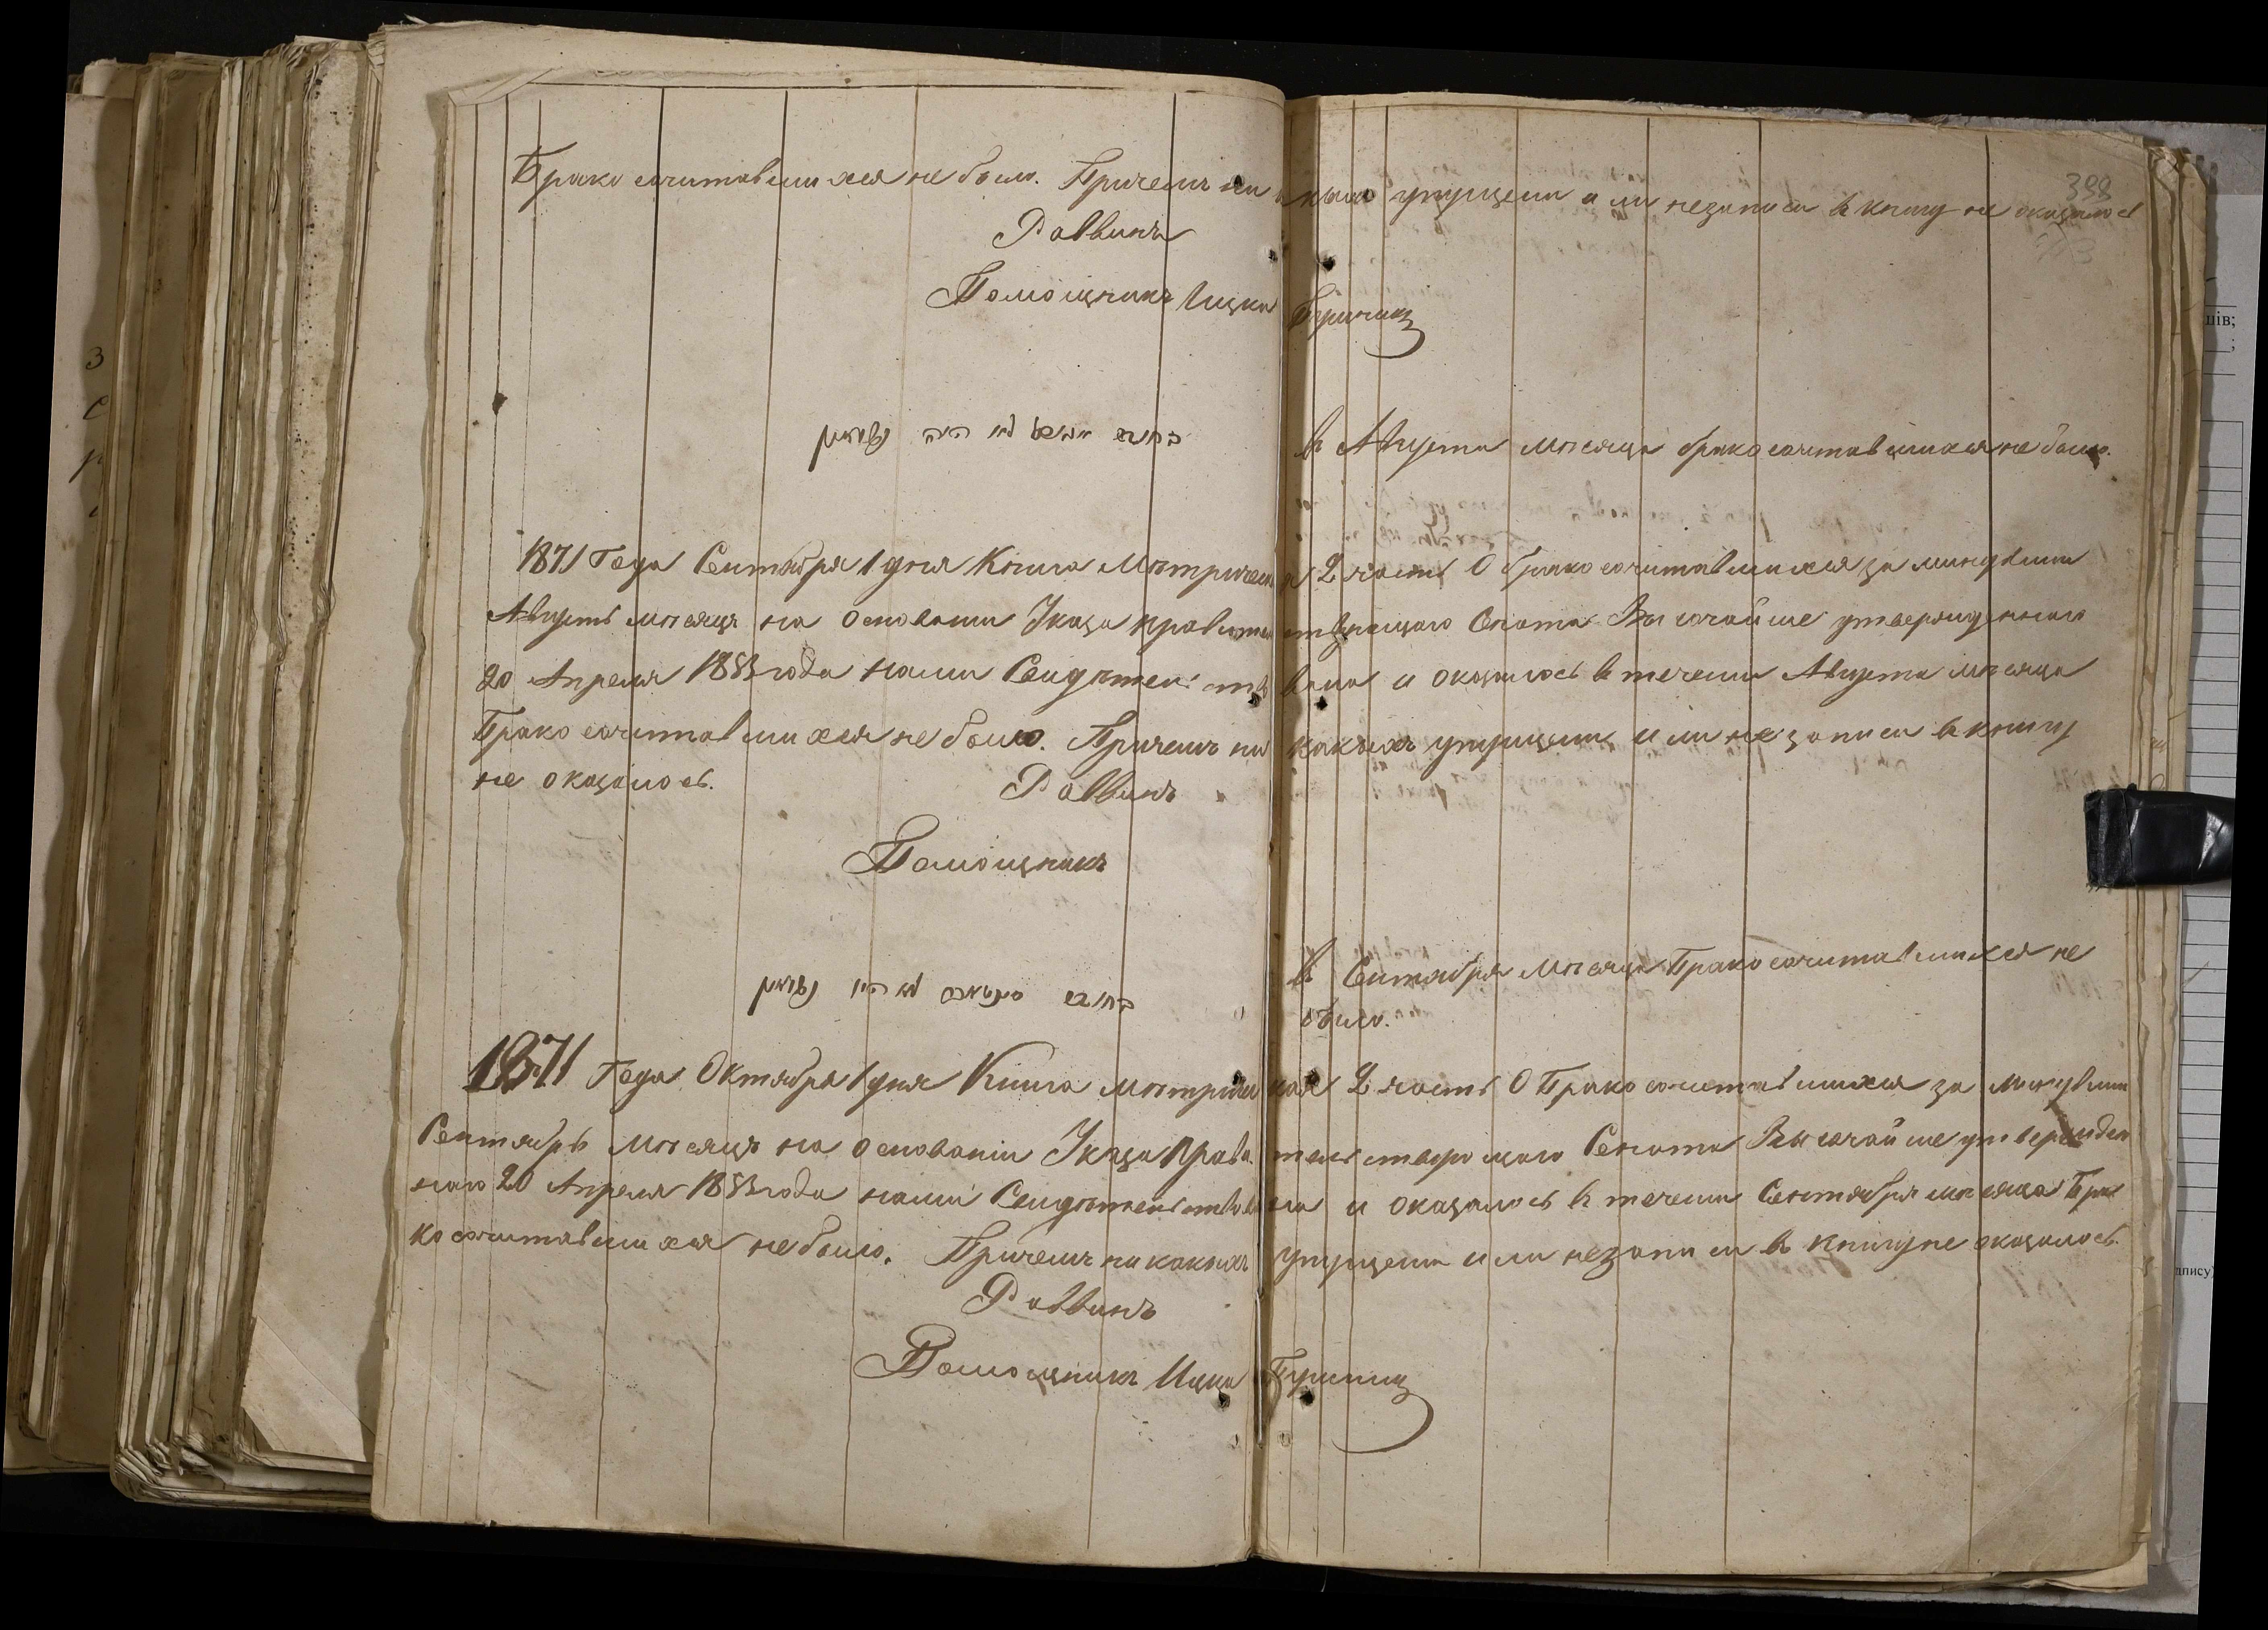 Брако сочитавшихся не было. Причемъ ни какихъ упущеии или незаписи въ книгу не оказалось
398
Раввинъ
Помощникъ Ицка
בחודש אויגוסט לא היה נשואין
в Августа месяца бракосочитавшихся не было.
1871 Года Сентября 1 дня Книга Метрическая 2 часть О бракосочитавшихся за минувшии
Августъ месяцъ на основании Указа правительствующаго Сената Высочайше утвержденнаго
20 Апреля 1853 года нами Свидетельствована и оказалось в течении Августа месяца
Брако сочитавшихся не было. Причемъ ни какихъ упущеии или не записи в книгу
не оказалось.
Раввинъ
Помощникъ
в Сентября Месяца Бракосочитавшихся не
בחודש סענטאבר לא היו נשואין
было.
1871 Года Октября 1 дня Книга метрическая 2 часть О Бракосочетавшихся за минувшии
Сентябрь Месяцъ на основании Указа Правительствующаго Сената Высочайше утвержден
наго 20 Апреля 1853 года нами Свидетельствована и оказалось в течении Сентября месяца Бра
косочитавшихся не было. Причемъ никакихъ упущеии или незаписи в книгу не оказалось.
Раввинъ
Помощникъ Ицка